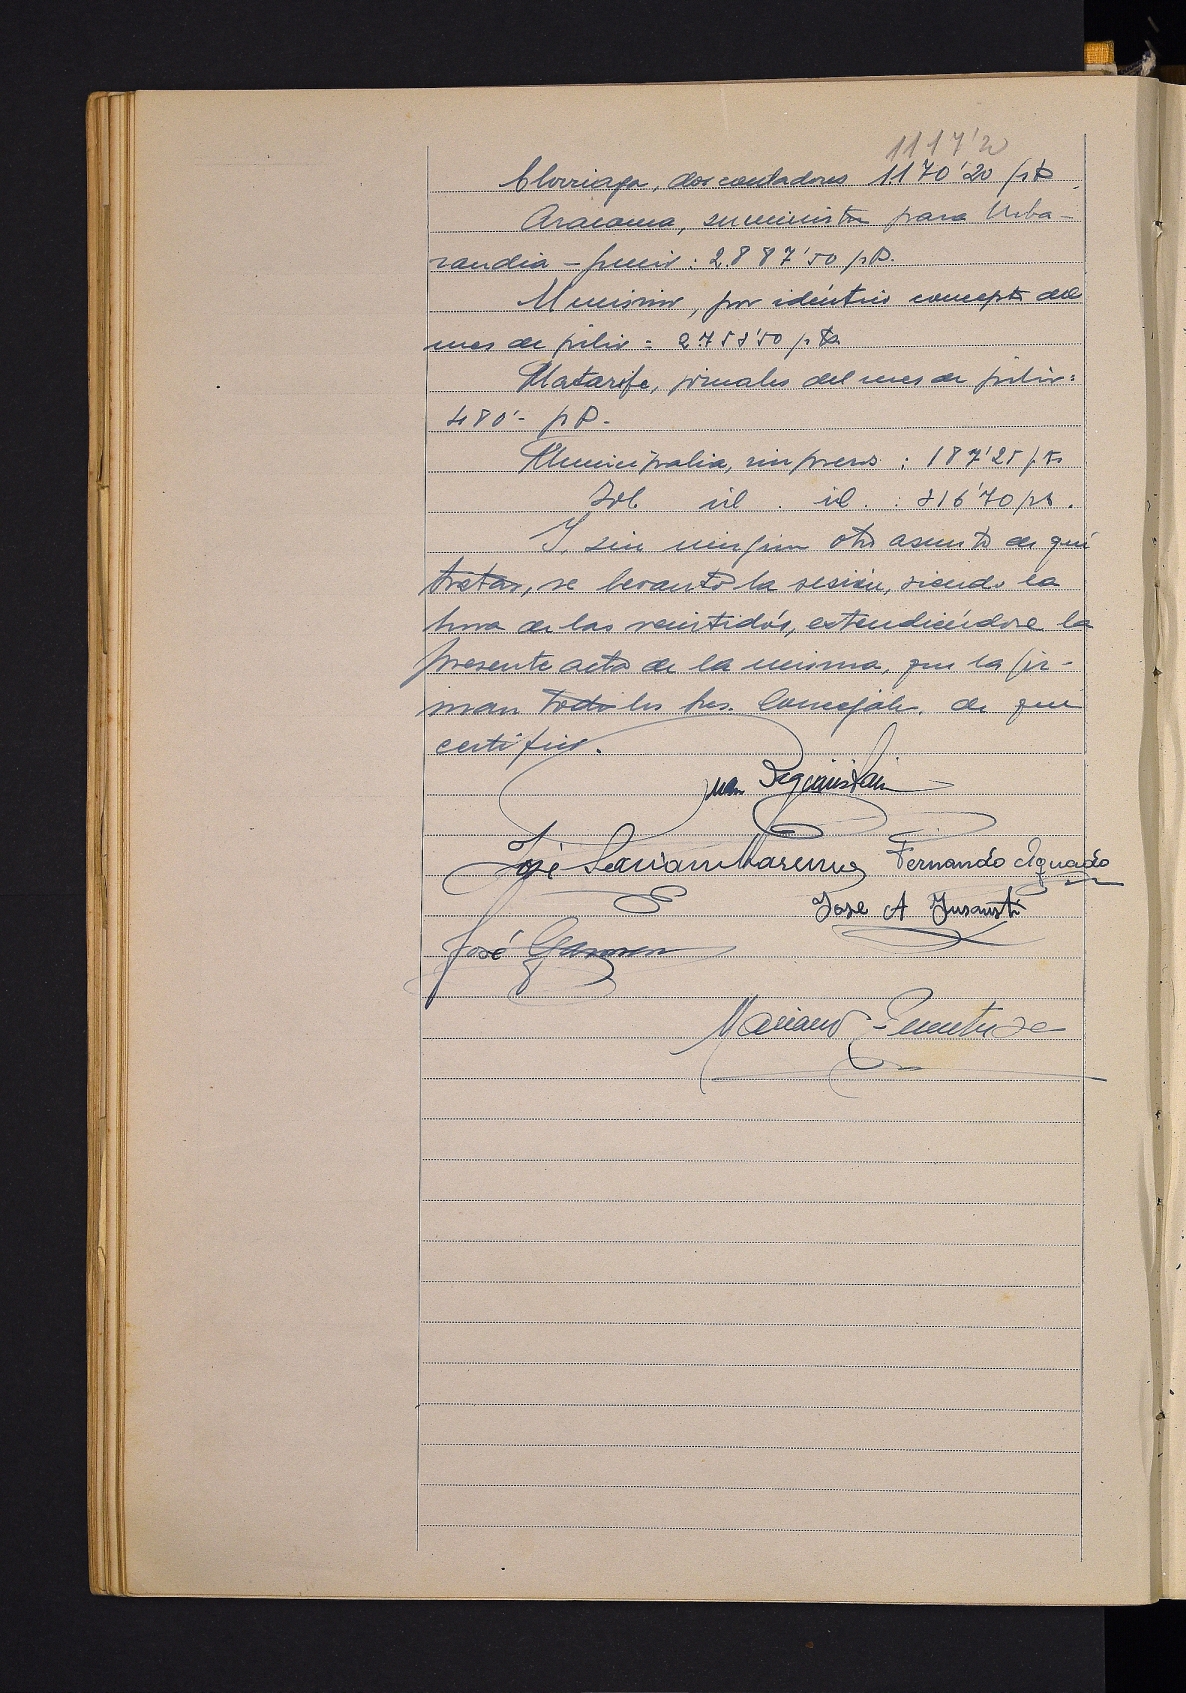 1117'20
Elorriaga, dos contadores 1170'20 pts
Aracama, suministro para Urba-
randia - junio: 2887'50 pts.
El mismo, por idéntico concepto del
mes de julio = 2758'50 pts
Matarife, jornales del mes de julio:
480'- pts.
Municipalia, impresos: 187'25 pts
Id. id. id.: 316'70 pts.
Y, sin ningún otro asunto de que
tratar, se levantó la sesión, siendo la
hora de las veintidós, extendiéndose la
presente acta de la misma, que la fir-
man todos los Sres. Concejales, de que
certifico.
Juan Beguiristain
José Fernando Aguado
Jose A Insausti
José
Mariano